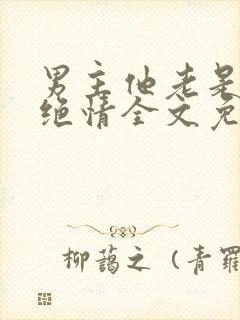 男主他老是
绝情全文免
柳蔼之(青罗